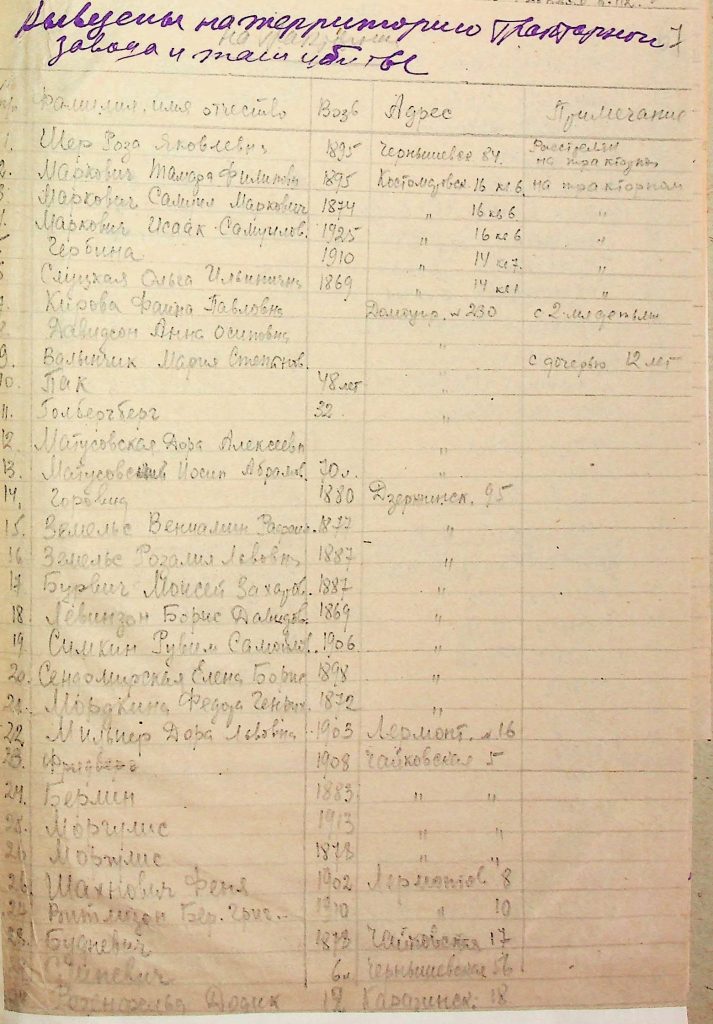 Выведены на территорию Тракторного 7
завода и там убиты
Фамилия, имя отчество Возв Адрес Примечание
1. Шер Роза Яковлевна 1895 Чернышевск 84. Расстрелян на тракторном
2. Маркович Тамара Филипов 1895 Костомаровск. 16 кв 6. на тракторном
3 Маркович Самуил Маркович 1874 " 16 кв 6 "
Маркович Исаак Самуилов. 1925 " 16 кв 6 "
Чербина 1910 " 14 кв 7. "
Слуцкая Ольга Ильинична 1869 " 14 кв 1 "
Кирова Фаина Павловна Домоупр. № 230 с 2-мя детьми
Давидсон Анна Осиповна "
9. Валынчик Мария Степанов. с дочерью 12 лет
10. Пак 48 лет "
11. 32 "
12. Матусовская Дора Алексеевн "
13. Иосип Абрамов. 70 л. "
14. Горовиц 1880 Дзержинск. 95
15. Земельс Вениамин 1877 "
16 Земельс Розалия Львовна 1887 "
17 Бурвич Моисей Захаров. 1887 "
18 Левинзон Борис Давидов. 1869 "
19. Симкин Рувим Самойлов. 1906 "
20. Сендомирская Елена Борис 1898 "
21. Мордкина Федора Генрих. 1872 "
22. Мильнер Дора Львовна 1903 Лермонт. № 16
23. 1908 Чайковская 5
24. Бермин 1883 " "
25. Моргулис 1913 " "
26. 1873 " "
26. Шахнович Феня 1902 Лермонтов 8
27. Бер. Григ. 1910 " 10
28. Будневич 1873 Чайковская 17
6 л Чернышевская 56
Розенфельд Додик 12 18